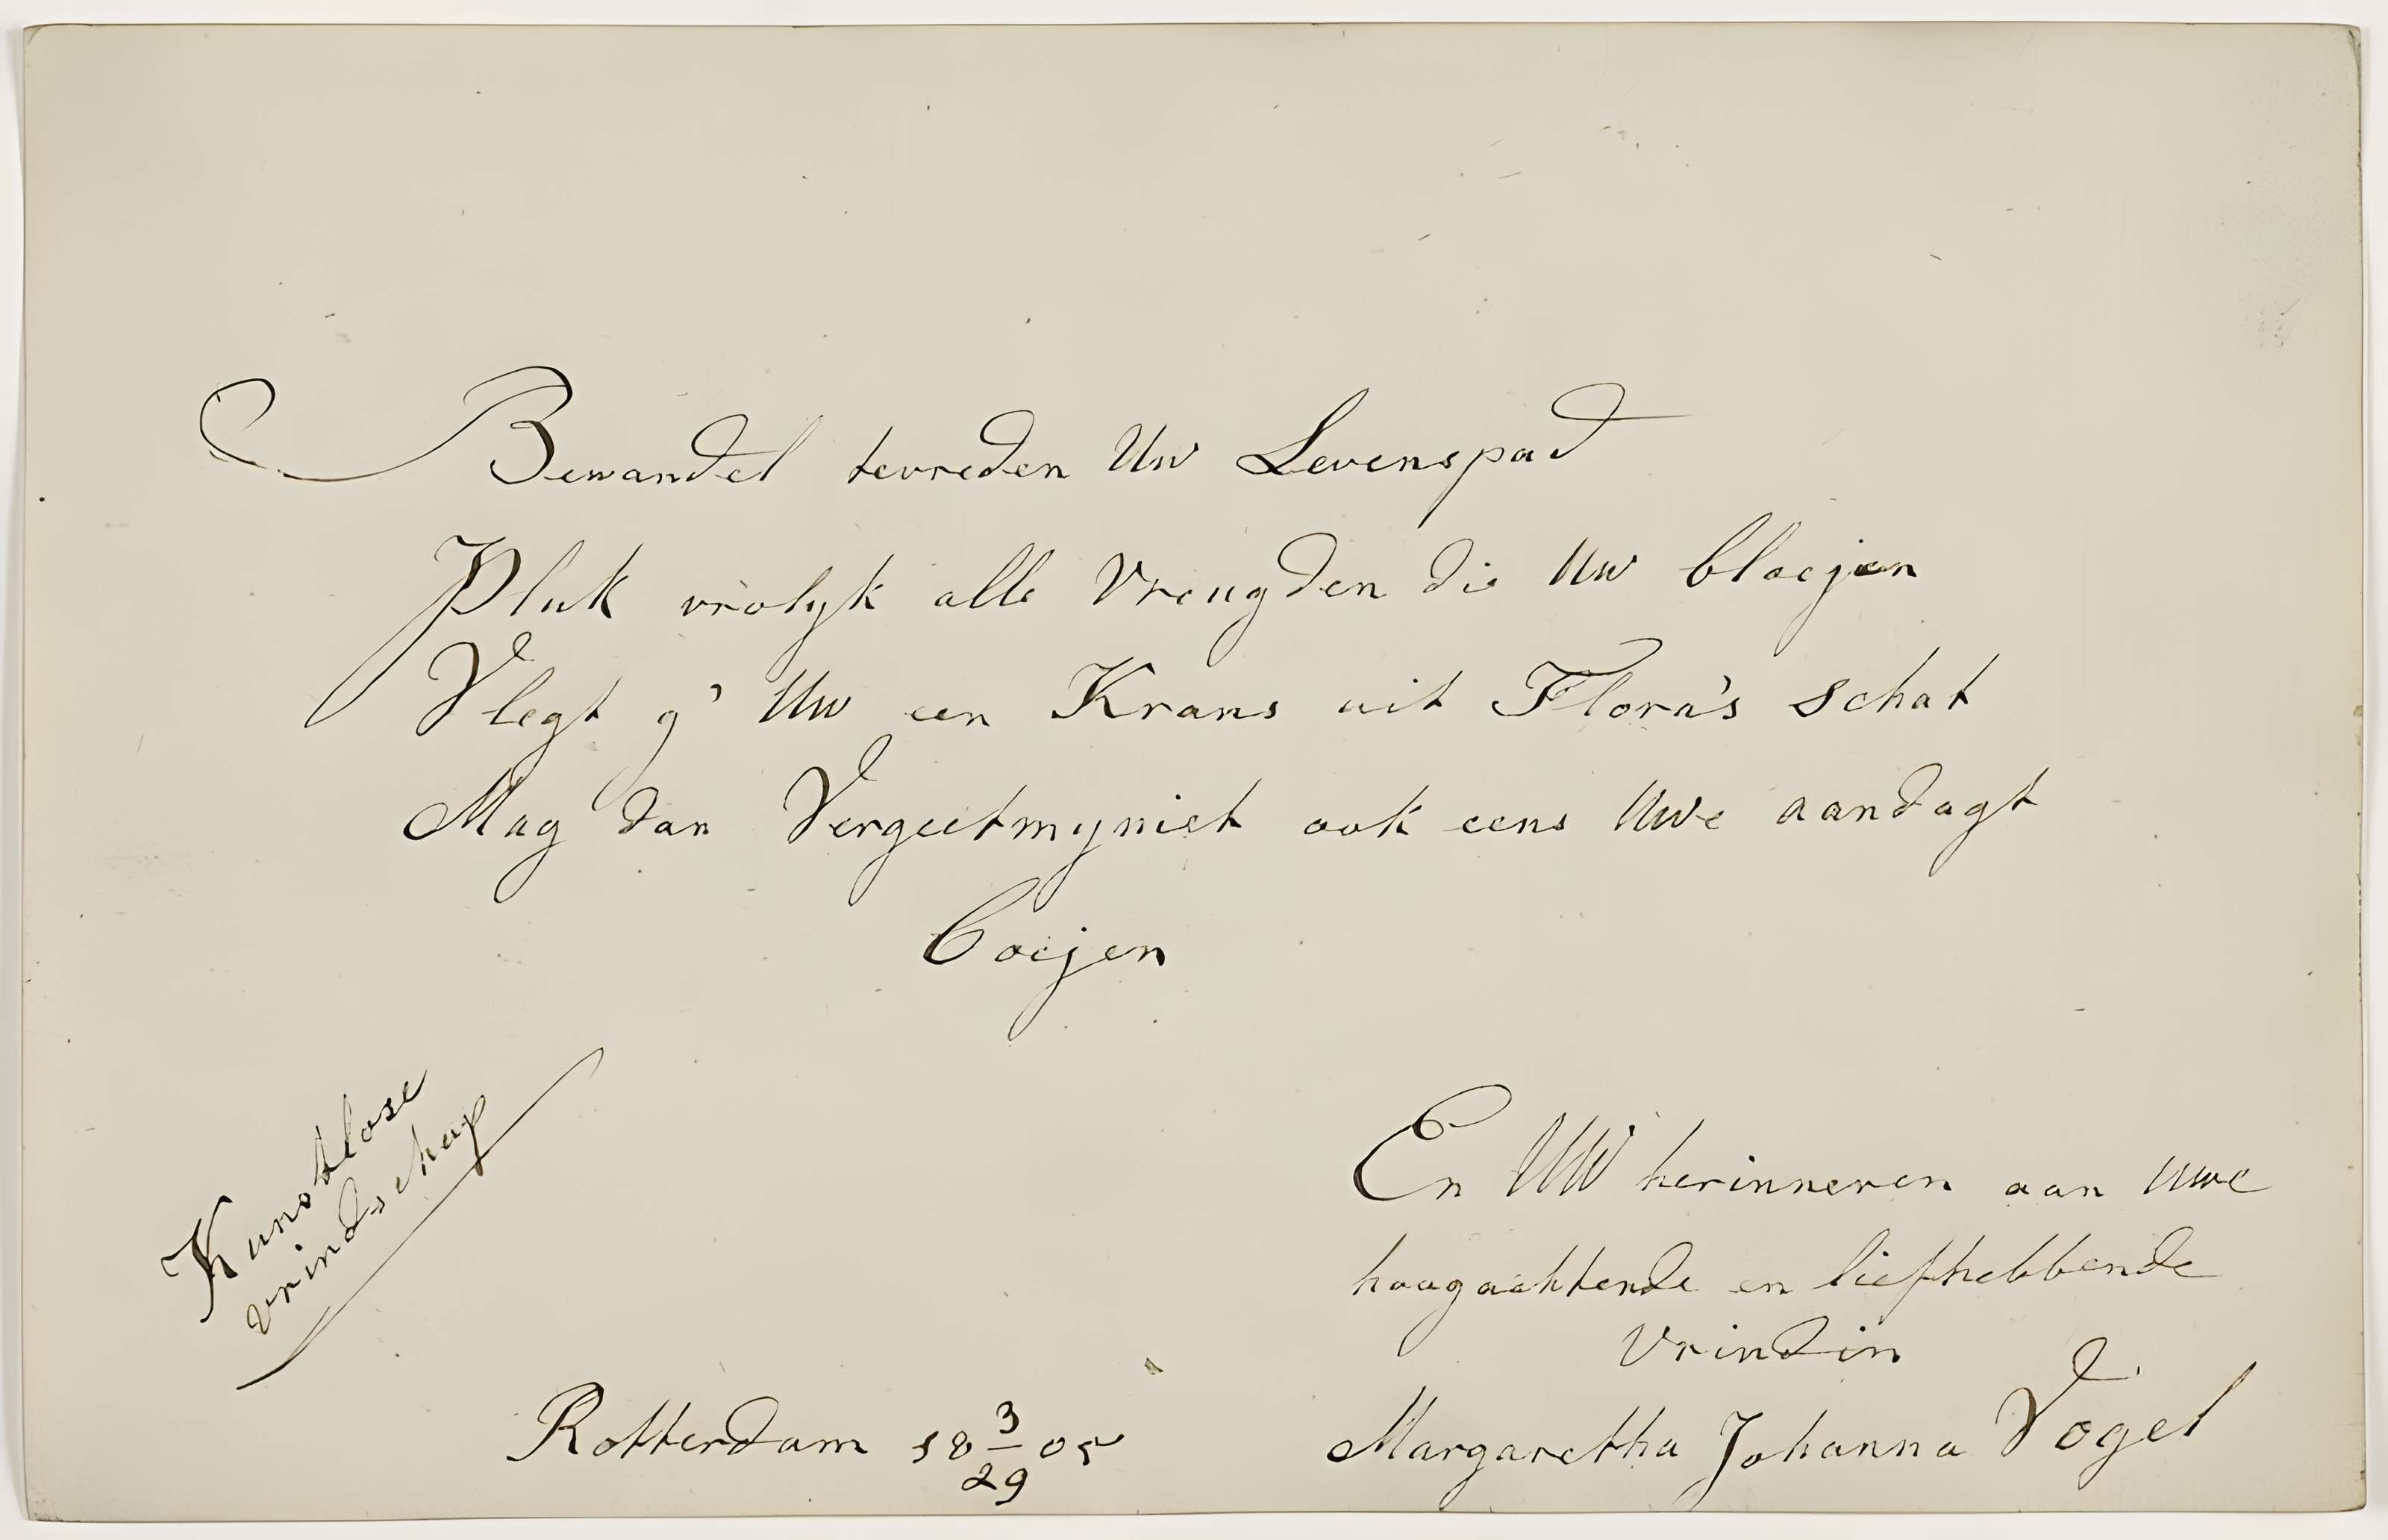 Bewandel tevreden Uw Levenspad
Pluk vrolyk alle Vreugden die Uw bloejen
Vlegt g' Uw een Krans uit Flora's schat
Mag dan Vergeetmyniet ook eens Uwe aandagt
boejen
Kunstlose
vrindschap
En UW herinneren aan uwe
hoogachtende en liefhebbende
Vrindin
Rotterdam 18 3/29 05
Margaretha Johanna Vogel